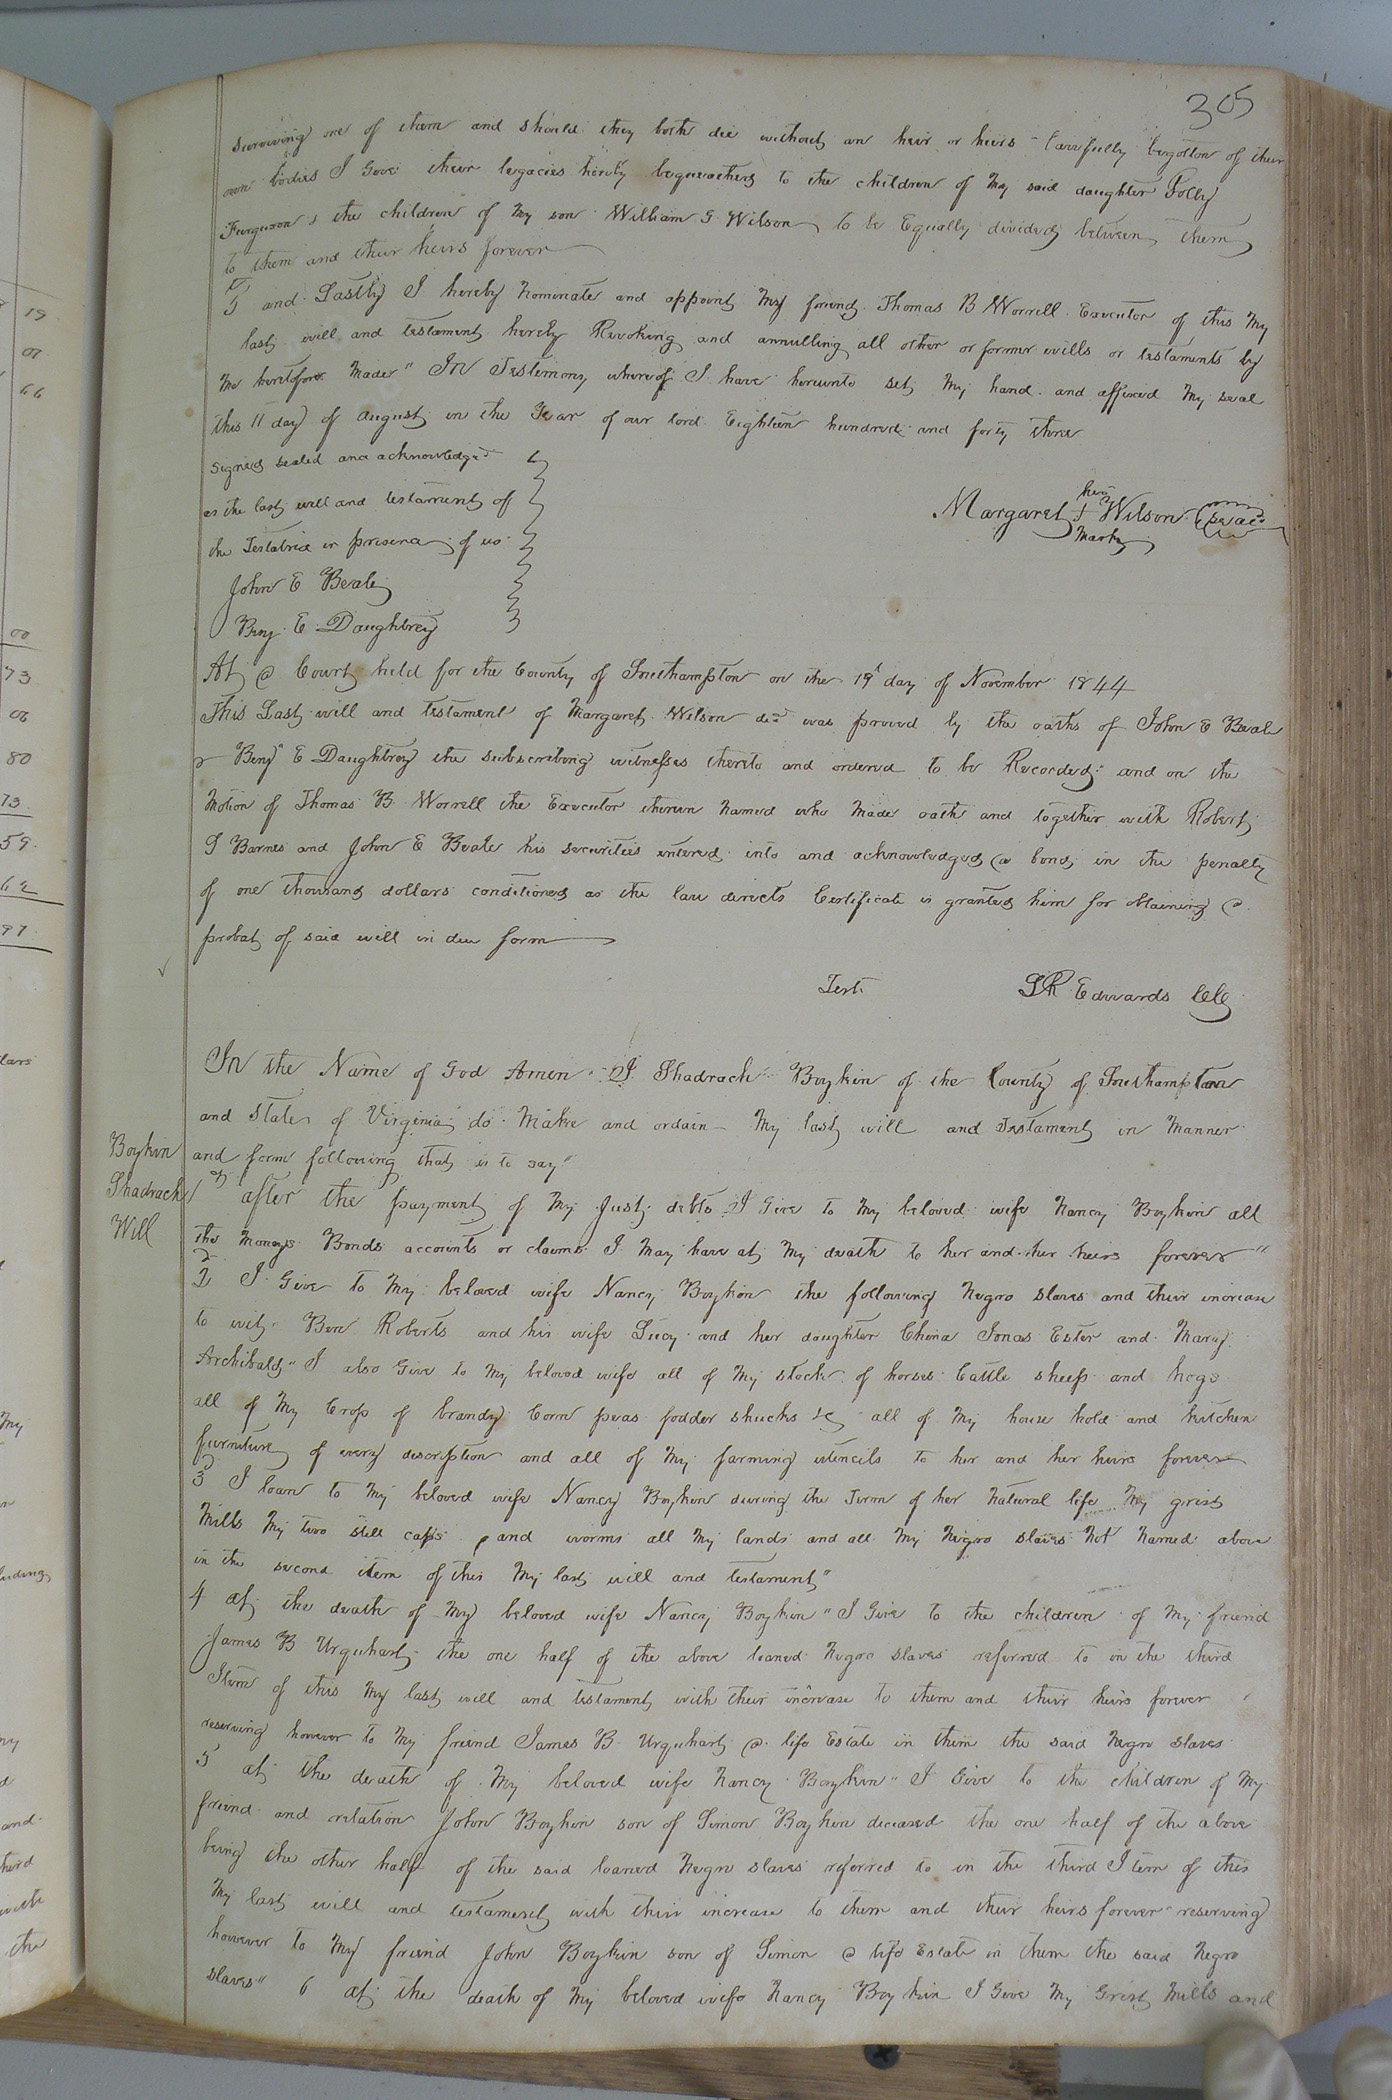 305
surviving one of them and should they both die without an heir or heirs lawfully begotton of their
own bodies I Give their legacies hereby bequeathed to the children of My said daughter Polly
Furguson & the children of My son William G Wilson to be Equally divided between them
to them and their heirs forever
5 and Lastly I hereby Nominate and appoint My friend Thomas B Worrell Executor of this My
last will and testament hereby Revoking and annulling all other or former wills or testaments by
Me heretofore Made" In Testimony whereof I have hereunto set My hand and affixed My seal
this 11 day of august in the Year of our lord Eighteen hundred and forty three
Signed sealed and acknowledged
as the last will and testament of
the Testatrix in presence of us
her
Margaret + Wilson (seal)
Mark
John E Beale
Benj E Daughtrey
At a Court held for the County of Southampton on the 19t day of November 1844
This Last will and testament of Margaret Wilson decd was proved by the oaths of John E Beale
& Benj E Daughtrey the subscribing witnesses thereto and ordered to be Recorded: and on the
Motion of Thomas B Worrell the Executor therein Named who Made oath and together with Robert
S Barnes and John E Beale his securities entered into and acknowledged a bond in the penalty
of one thousand dollars conditioned as the law directs Certificate is granted him for obtaining a
probat of said will in due form
Test. LR Edwards Clk
In the Name of God Amen I Shadrach Boykin of the County of Southampton
and State of Virginia do Make and ordain My last will and Testament in Manner
Boykin
Shadrach
Will
and form following that is to say"
1st after the payment of My Just debts I Give to My beloved wife Nancy Boykin all
the Moneys Bonds accounts or claims I May have at My death to her and her heirs forever"
2 I Give to My beloved wife Nancy Boykin the following Negro slaves and their increase
to wit Ben Roberts and his wife Lucy and her daughter China Jonas Ester and Mary
Archibald" I also Give to My beloved wife all of My stock of horses Cattle sheep and hogs
all of My Crop of brandy Corn peas fodder shucks &c all of My house hold and kitchen
furniture of every discription and all of My farming utencils to her and her heirs forever
3 I loan to My beloved wife Nancy Boykin during the Term of her Natural life My grist
Mills My two still caps and worms all My lands and all My Negro slaves Not Named above
in the second item of this My last will and testament"
4 at the death of My beloved wife Nancy Boykin" I Give to the children of My friend
James B Urquhart the one half of the above loaned Negro slaves referred to in the third
Item of this My last will and testament with their increase to them and their heirs forever
reserving however to My friend James B. Urquhart a life Estate in them the said Negro slaves
5 at the death of My beloved wife Nancy Boykin" I Give to the children of My
friend and relation John Boykin son of Simon Boykin deceased the one half of the above
being the other half of the said loaned Negro slaves referred to in the third Item of this
My last will and testament with their increase to them and their heirs forever" reserving
however to My friend John Boykin son of Simon a life Estate in them the said Negro
slaves" 6 at the death of My beloved wife Nancy Boykin I Give My Grist Mills and